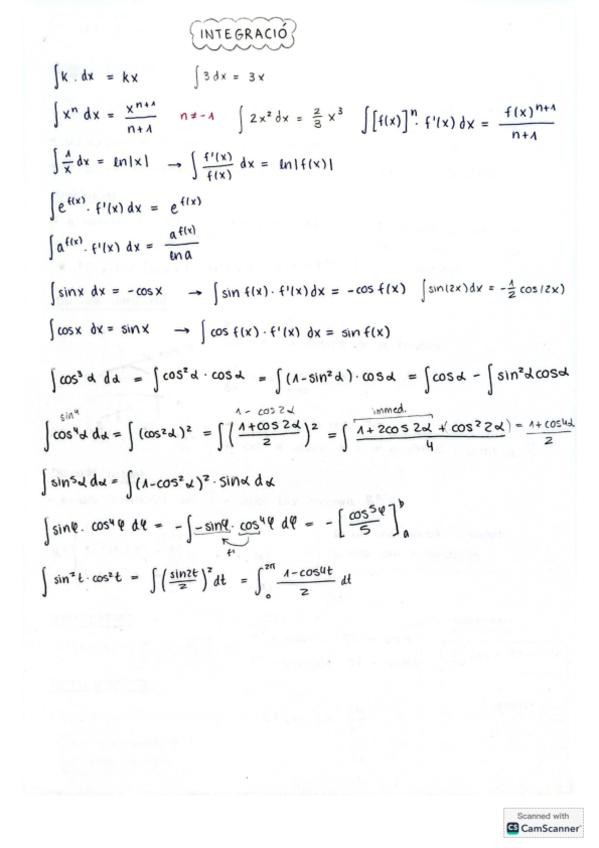 INTEGRACIÓ
∫k . dx = kx   ∫3 dx = 3x
∫xⁿ dx = xⁿ⁺¹/(n+1)   n≠-1   ∫2x² dx = 2/3 x³   ∫[f(x)]ⁿ · f'(x) dx = f(x)ⁿ⁺¹/(n+1)
∫1/x dx = ln|x| → ∫f'(x)/f(x) dx = ln|f(x)|
∫e^f(x) · f'(x) dx = e^f(x)
∫a^f(x) · f'(x) dx = a^f(x)/ln a
∫sinx dx = -cosx → ∫sin f(x) · f'(x) dx = -cos f(x)   ∫sin(2x) dx = -1/2 cos(2x)
∫cosx dx = sinx → ∫cos f(x) · f'(x) dx = sin f(x)
∫cos³α dα = ∫cos²α · cosα = ∫(1-sin²α) · cosα = ∫cosα - ∫sin²α cosα
sin⁴   1 - cos2α   immed.
∫cos⁴α dα = ∫(cos²α)² = ∫((1+cos2α)/2)² = ∫(1+2cos2α + (cos²2α))/4 = (1+cos4α)/2
∫sin⁵α dα = ∫(1-cos²α)² · sinα dα
∫sinφ · cos⁴φ dφ = -∫-sinφ · cos⁴φ dφ = -[cos⁵φ/5]ₐᵇ
f'
∫sin²t · cos²t = ∫(sin2t/2)² dt = ∫₀^2π (1-cos4t)/2 dt
Scanned with
CS CamScanner